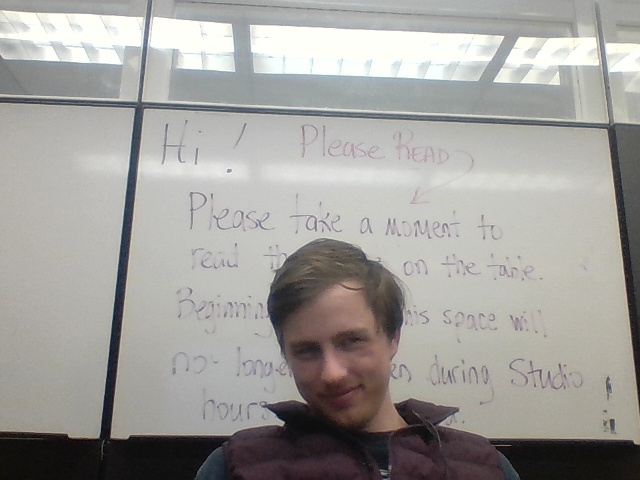 Hi! Please READ
Please take a moment to
read on the table.
Beginning this space will
no longer during Studio
hours